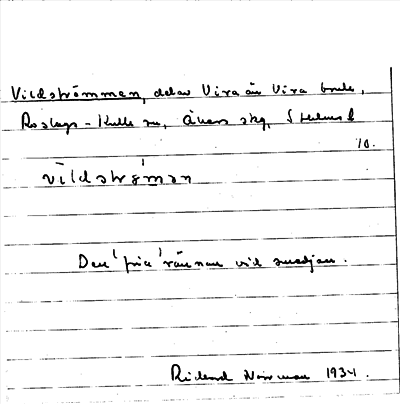 Vildströmmen, del av Vira ån Vira bruk,
Roslags-Kulla sn, Åkers skg, Sthlms l
10.
vìldstrǫ̀mən
Den 'fria' rännan vid smedjan.
Rickard Norrman 1934.